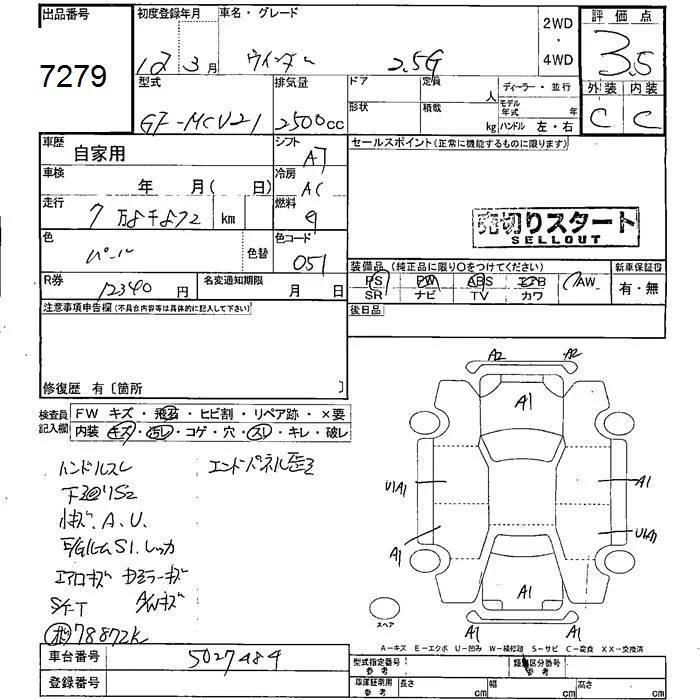 出品番号 初度登録年月 車名・グレード 2WD 評価点
7279 12年3月 ウインダム 2.5G ・ 3.5
4WD
型式 排気量 ドア 定員 人 ディーラー・並行 外装 内装
GF-MCV21 2500cc 形状 積載 kg モデル年式 年 C C
ハンドル 左・右
車歴 自家用 シフト AT セールスポイント(正常に機能するものに限ります)
車検 年 月( 日) 冷房 AC
走行 7万8千872 km 燃料 G
売切りスタート
SELLOUT
色 パール 色替 色コード 051
装備品 (純正品に限り○をつけてください) 新車保証書
R券 12340円 名変通知期限 月 日 PS PW ABS エアB AW 有・無
SR ナビ TV カワ
注意事項申告欄(不具合内容等は具体的に記入して下さい) 後日品
修復歴 有〔箇所 〕
検査員記入欄 FW キズ・飛石・ヒビ割・リペア跡・×要
内装 キズ・汚レ・コゲ・穴・スレ・キレ・破レ
A2 A2
A1
ハンドルスレ エンドパネル歪ミ
下
小キズ.A.U. U1A1 A1
A1 U1A1
エアロキズ
A1
S/F-T A/Wキズ
スペア
78872K A1 A1
A-キズ E-エクボ U-凹み W-補修跡 S-サビ C-腐食 XX-交換済
車台番号 5027484 型式指定番号 参考 類別区分番号 参考
登録番号 車庫証明用 参考 長さ cm 幅 cm 高さ cm